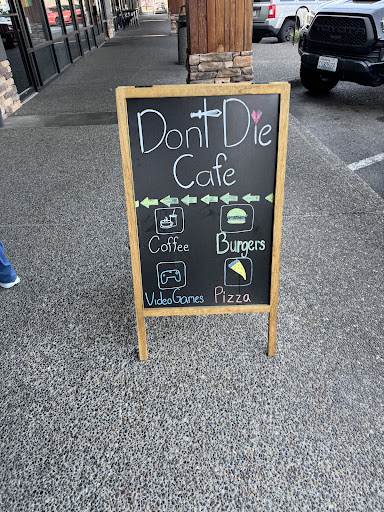 Dont Die
Cafe
Coffee
Burgers
Video Games
Pizza